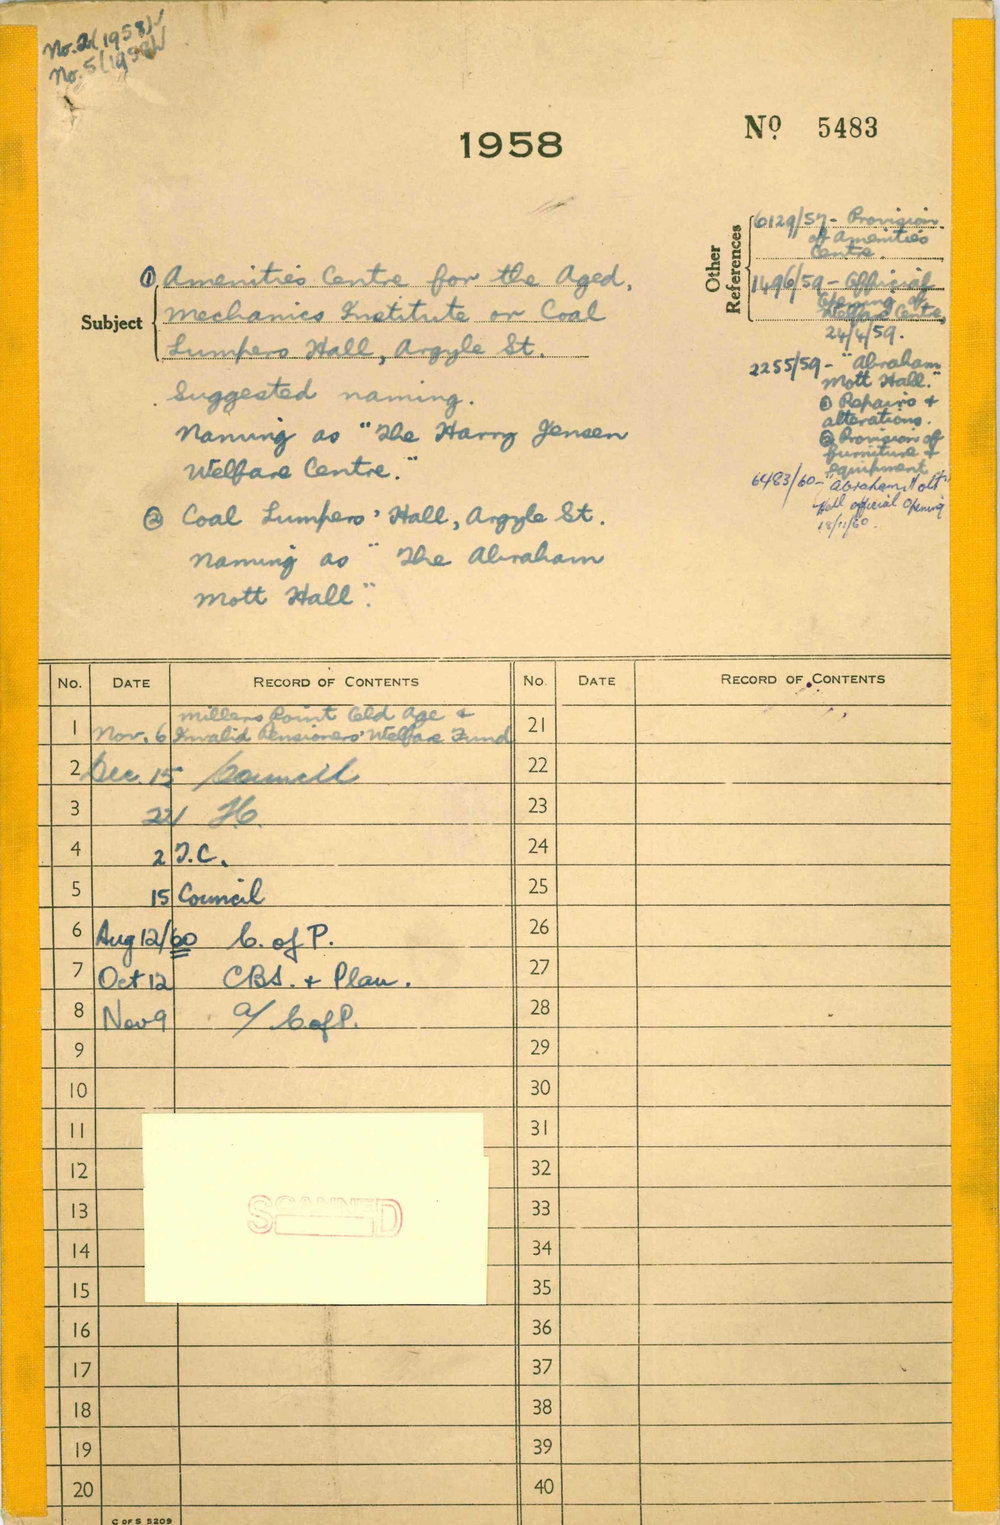 No. 2 (1958)
No. 5 (1958)
1958
No 5483
Other References
6129/57 - Provision
of Amenities
Centre.
1496/59 - Official
Opening of
Welfare Centre,
24/4/59.
2255/59 - "Abraham
Mott Hall."
① Repairs +
alterations.
② Provision of
furniture +
equipment
6483/60 - "Abraham Mott"
Hall official Opening
18/11/60.
Subject
① Amenities Centre for the Aged,
Mechanics Institute or Coal
Lumpers Hall, Argyle St.
Suggested naming.
Naming as "The Harry Jensen
Welfare Centre."
② Coal Lumpers' Hall, Argyle St.
Naming as "The Abraham
Mott Hall".
No. DATE RECORD OF CONTENTS No. DATE RECORD OF CONTENTS
1 Nov. 6 Millers Point Old Age +
Invalid Pensioners' Welfare Fund
2 Dec. 15 Council
3 22
4 2 T.C.
5 15 Council
6 Aug 12/60 C. of P.
7 Oct 12 CBS. + Plan.
8 Nov 9 a/ C of P.
9
10
11
12
13
14
15
16
17
18
19
20
21
22
23
24
25
26
27
28
29
30
31
32
33
34
35
36
37
38
39
40
SCANNED
C OF S 5209